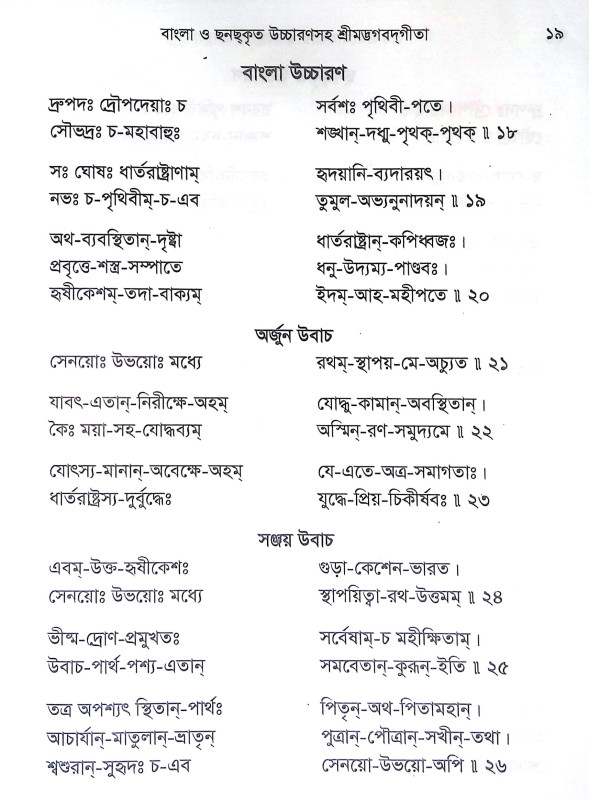 বাংলা ও ছনছ্কৃত উচ্চারণসহ শ্রীমদ্ভগবদ্‌গীতা ১৯
বাংলা উচ্চারণ
দ্রুপদঃ দ্রৌপদেয়াঃ চ সর্বশঃ পৃথিবী-পতে।
সৌভদ্রঃ চ-মহাবাহুঃ শঙ্খান্-দধ্মু-পৃথক্-পৃথক্ ॥ ১৮
সঃ ঘোষঃ ধার্তরাষ্ট্রাণাম্ হৃদয়ানি-ব্যদারয়ৎ।
নভঃ চ-পৃথিবীম্-চ-এব তুমুল-অভ্যনুনাদয়ন্ ॥ ১৯
অথ-ব্যবস্থিতান্-দৃষ্ট্বা ধার্তরাষ্ট্রান্-কপিধ্বজঃ।
প্রবৃত্তে-শস্ত্র-সম্পাতে ধনু-উদ্যম্য-পাণ্ডবঃ।
হৃষীকেশম্-তদা-বাক্যম্ ইদম্-আহ-মহীপতে ॥ ২০
অর্জুন উবাচ
সেনয়োঃ উভয়োঃ মধ্যে রথম্-স্থাপয়-মে-অচ্যুত ॥ ২১
যাবৎ-এতান্-নিরীক্ষে-অহম্ যোদ্ধু-কামান্-অবস্থিতান্।
কৈঃ ময়া-সহ-যোদ্ধব্যম্ অস্মিন্-রণ-সমুদ্যমে ॥ ২২
যোৎস্য-মানান্-অবেক্ষে-অহম্ যে-এতে-অত্র-সমাগতাঃ।
ধার্তরাষ্ট্রস্য-দুর্বুদ্ধেঃ যুদ্ধে-প্রিয়-চিকীর্ষবঃ ॥ ২৩
সঞ্জয় উবাচ
এবম্-উক্ত-হৃষীকেশঃ গুড়া-কেশেন-ভারত।
সেনয়োঃ উভয়োঃ মধ্যে স্থাপয়িত্বা-রথ-উত্তমম্ ॥ ২৪
ভীষ্ম-দ্রোণ-প্রমুখতঃ সর্বেষাম্-চ মহীক্ষিতাম্।
উবাচ-পার্থ-পশ্য-এতান্ সমবেতান্-কুরূন্-ইতি ॥ ২৫
তত্র অপশ্যৎ স্থিতান্-পার্থঃ পিতৃন্-অথ-পিতামহান্।
আচার্যান্-মাতুলান্-ভ্রাতৃন্ পুত্রান্-পৌত্রান্-সখীন্-তথা।
শ্বশুরান্-সুহৃদঃ চ-এব সেনয়ো-উভয়ো-অপি ॥ ২৬